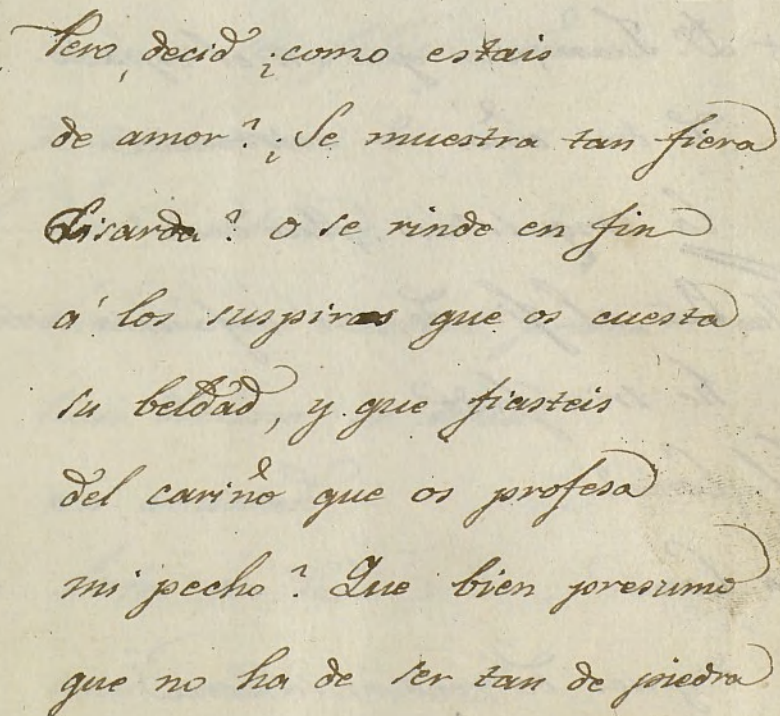 Pero, decid ¿como estais
de amor? ¿Se muestra tan fiera
Lisarda? o se rinde en fin
á los suspiros que os cuesta
su beldad, y que fiasteis
del cariño que os profesa
mi pecho? Que bien presumo
que no ha de ser tan de piedra